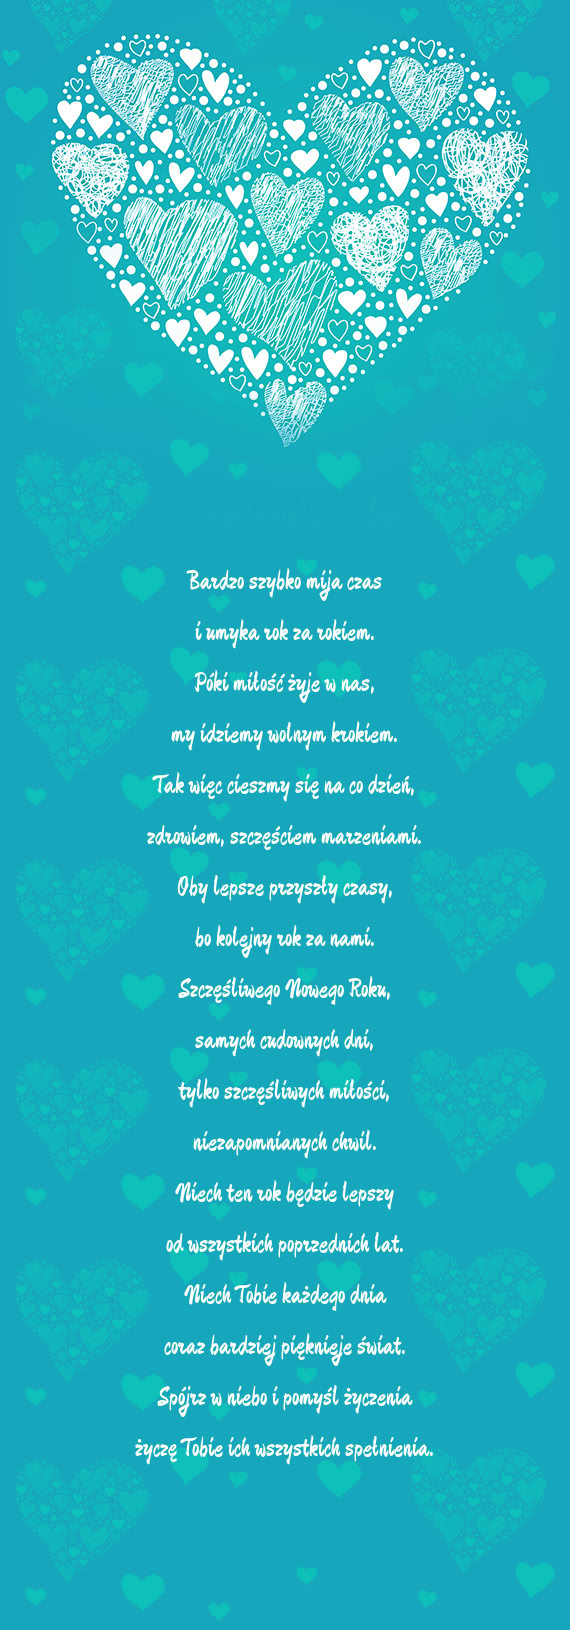 Bardzo szybko mija czas
i umyka rok za rokiem.
Póki miłość żyje w nas,
my idziemy wolnym krokiem.
Tak więc cieszmy się na co dzień,
zdrowiem, szczęściem marzeniami.
Oby lepsze przyszły czasy,
bo kolejny rok za nami.
Szczęśliwego Nowego Roku,
samych cudownych dni,
tylko szczęśliwych miłości,
niezapomnianych chwil.
Niech ten rok będzie lepszy
od wszystkich poprzednich lat.
Niech Tobie każdego dnia
coraz bardziej pięknieje świat.
Spójrz w niebo i pomyśl życzenia
życzę Tobie ich wszystkich spełnienia.